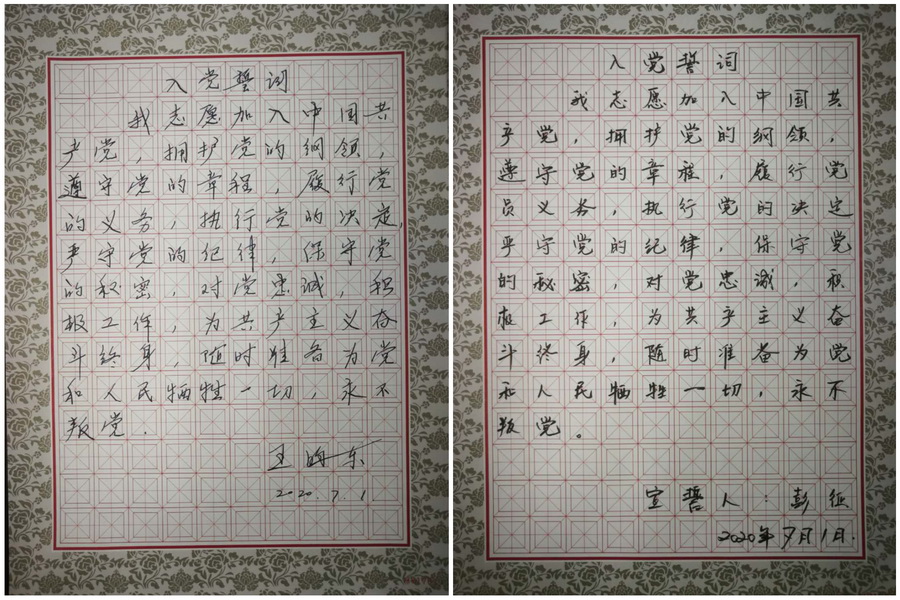 入党誓词
我志愿加入中国共
产党，拥护党的纲领，
遵守党的章程，履行党
的义务，执行党的决定，
严守党的纪律，保守党
的秘密，对党忠诚，积
极工作，为共产主义奋
斗终身，随时准备为党
和人民牺牲一切，永不
叛党.
2020.7.1
入党誓词
我志愿加入中国共
产党，拥护党的纲领，
遵守党的章程，履行党
员义务，执行党的决定
严守党的纪律，保守党
的秘密，对党忠诚，积
极工作，为共产主义奋
斗终身，随时准备为党
和人民牺牲一切，永不
叛党。
宣誓人：彭征
2020年7月1日.